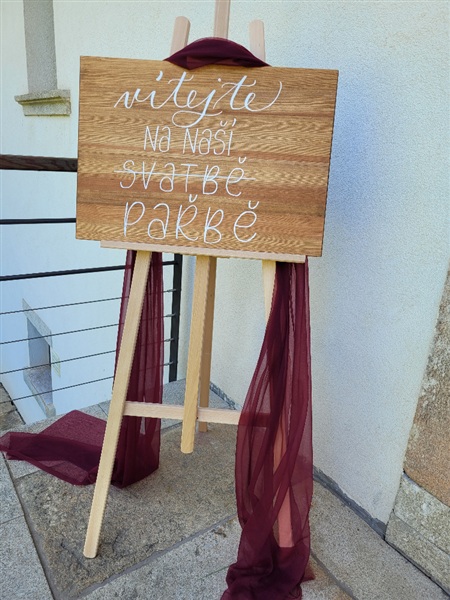 vítejte
NA NAŠÍ
SVATBĚ
PAŘBĚ